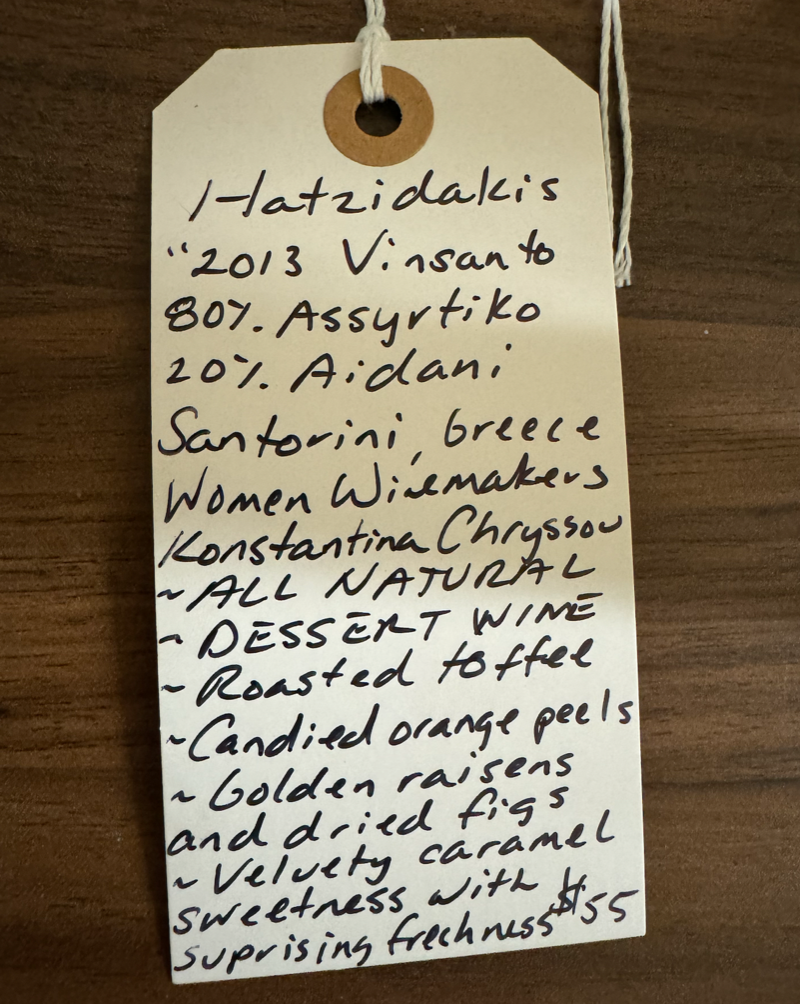 Hatzidakis
"2013 Vinsanto
80% Assyrtiko
20% Aidani
Santorini, Greece
Women Winemakers
Konstantina Chryssou
~ALL NATURAL
~DESSERT WINE
~Roasted toffee
~Candied orange peels
~Golden raisens
and dried figs
~Velvety caramel
sweetness with
suprising freshness $55